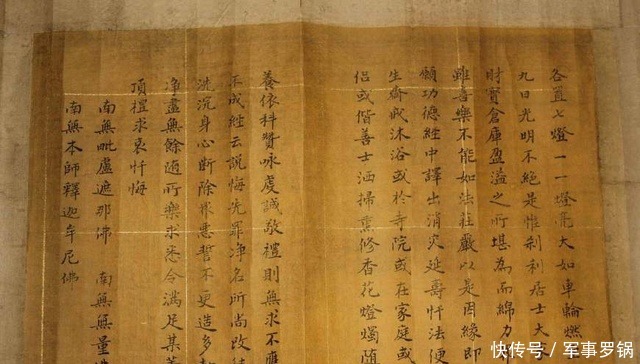 各置七燈一一燈量大如車輪燃
九日光明不絕是惟刹利居士大
財寶倉庫盈溢之所堪為而綿力
雖喜樂不能如法莊嚴以是因緣即
願功德經中譯出消灾延壽忏法便
生齋戒沐浴或於寺院或在家庭或
侶或偕善士洒掃熏修香花燈燭隨
養依科贊咏虔誠敬禮則無求不應
不成經云說悔先罪净名所尚改往
洗沉身心斷除衆惡誓不更造多劫
净盡無餘随所樂求悉令满足某
頂禮求哀忏悔
南無毗盧遮那佛 南無無量
南無本師釋迦牟尼佛
快传号／军事罗锅